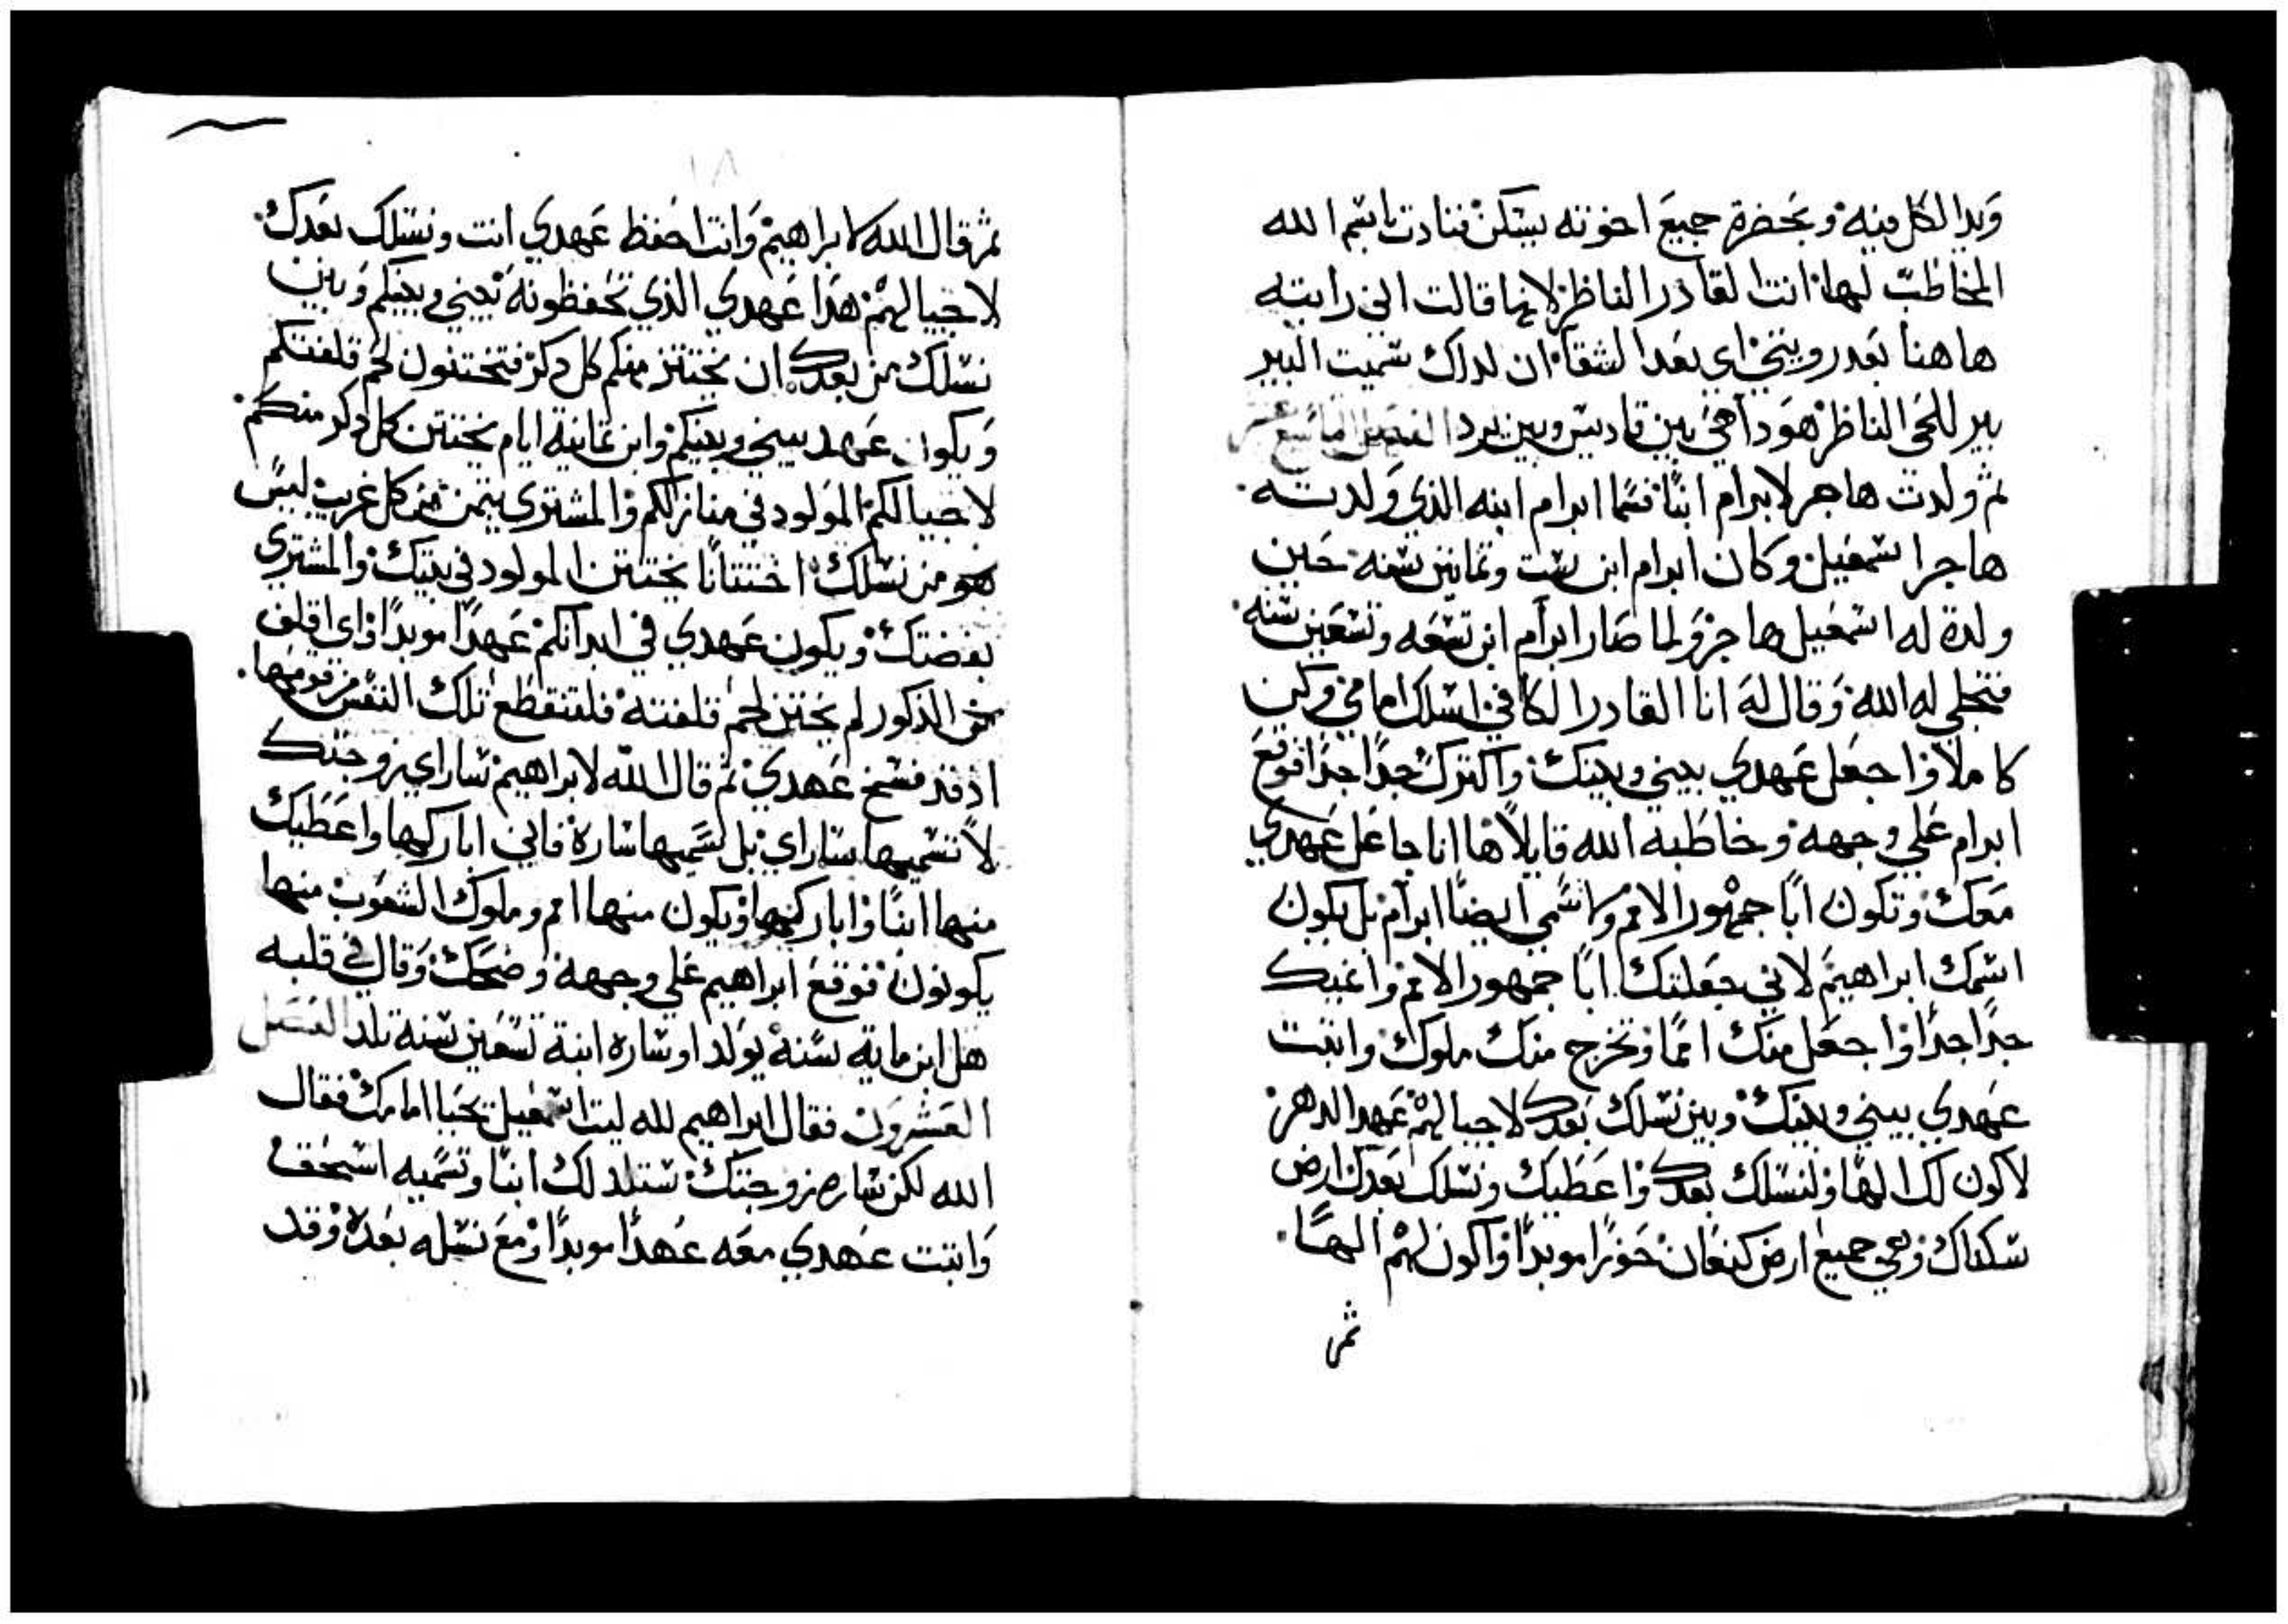 ويد الكل فيه وبحضرة جميع اخوته يسكن فنادت باسم الله
المخاطب لها انت القادر الناظر لانها قالت اني رايته
هاهنا بعد رويتي اي بعد الشقا ان لداك سميت البير
بير للحي الناظر هوداهي بين قاديس وبين برد الفصل
ثم ولدت هاجر لابرام ابنا فسما ابرام ابنه الذي ولدته
هاجر اسمعيل وكان ابرام ابن ست وثمانين سنه حين
ولدة له اسمعيل هاجر ولما صار ابرام ابن تسعه وتسعين سنه
فتجلي له الله وقال له انا القادر الكافي اسلك امامي وكن
كاملا واجعل عهدي بيني وبينك واكترك جدا جدا فوقع
ابرام علي وجهه وخاطبه الله قايلا ها انا جاعل عهدي
معك وتكون ابا جمهور الامم ولا تسمي ايضا ابرام بل يكون
اسمك ابراهيم لاني جعلتك ابا جمهور الامم واغيك
جدا جدا واجعل منك امما وتخرج منك ملوك واثبت
عهدي بيني وبينك وبين نسلك بعدك لاجيالهم عهد الدهر
لاكون لك الها ولنسلك بعدك واعطيك ونسلك بعدك ارض
سكناك وهي جميع ارض كنعان حوزا موبدا واكون لهم الها
ثم
١٨
ثم قال الله لابراهيم وانت احفظ عهدي انت ونسلك بعدك
لاجيالهم هدا عهدي الذي تحفظونه بيني وبينكم وبين
نسلك من بعدك ان يختتن منكم كل دكر فتختتنون لحم قلفتكم
ويكون عهد بيني وبينكم وابن ثمانية ايام يختتن كل دكر منكم
لاجيالكم المولود في منازلكم والمشتري بثمن من كل غريب ليس
هو من نسلك اختتانا يختتن المولود في بيتك والمشتري
بفضتك ويكون عهدي في ابدانكم عهدا موبدا واي اقلف
من الذكور لم يختتن لحم قلفته فلتنقطع تلك النفس من قومها
اذ قد فسخ عهدي ثم قال الله لابراهيم ساراي زوجتك
لا تسميها ساراي بل تسميها سارة فاني اباركها واعطيك
منها ابنا واباركها ويكون منها امم وملوك الشعوب منها
يكونون فوقع ابراهيم علي وجهه وضحك وقال في قلبه
هل ابن مايه سنة يولد او ساره ابنة تسعين سنة تلد الفصل
العشرون فقال ابراهيم لله ليت اسمعيل يحيا امامك فقال
الله لكن ساره زوجتك ستلد لك ابنا وتسميه اسحق
واثبت عهدي معه عهدا موبدا ومع نسله بعده وقد